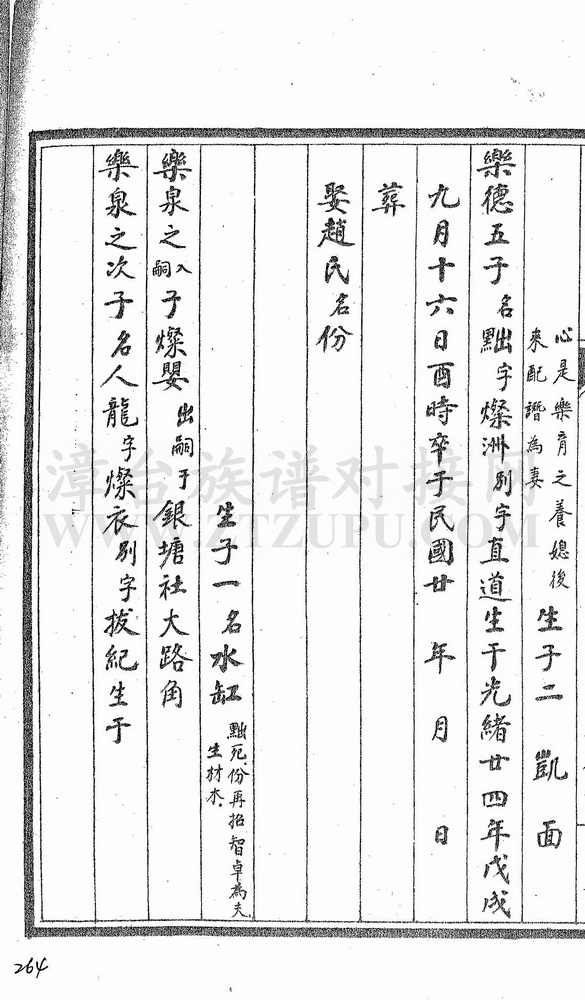 心是樂育之養媳後
來配諧為妻
生子二 凱 面
樂德五子名黜字燦洲別字直道生于光緒廿四年戊戌
九月十六日酉時卒于民國廿 年 月 日
葬
娶趙氏名份
生子一名水缸
黜死份再招智卓為夫
生材木.
樂泉之入嗣子燦嬰出嗣于銀塘社大路角
樂泉之次子名人龍字燦衣別字拔紀生于
漳台族谱对接网
WWW.ZTZUPU.COM
264